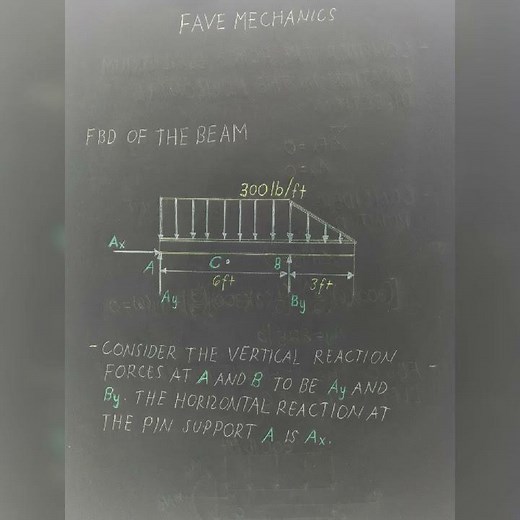 FAVE MECHANICS
FBD OF THE BEAM
300lb/ft
Ax
A
C
B
6ft
3ft
Ay
By
- CONSIDER THE VERTICAL REACTION
FORCES AT A AND B TO BE Ay AND
By. THE HORIZONTAL REACTION AT
THE PIN SUPPORT A IS Ax.